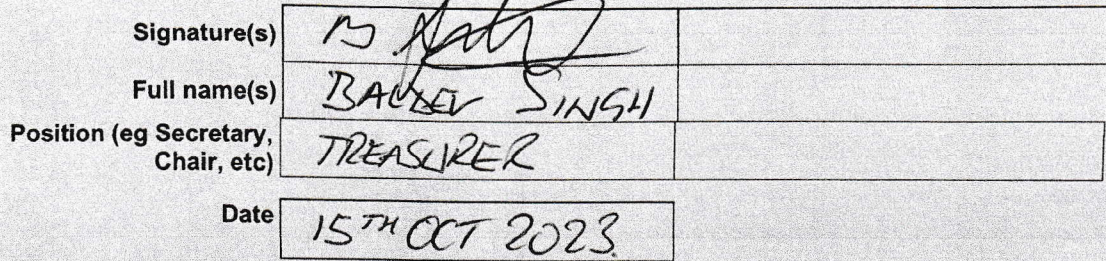 Signature(s)
Full name(s) BALDEV SINGH
Position (eg Secretary, TREASURER
Chair, etc)
Date 15TH OCT 2023.